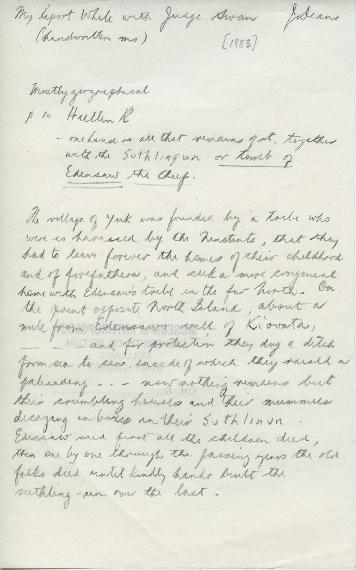 My report while with Judge Swan J Deans
(handwritten ms) [1983]
Mostly geographical
p 10 Hiellen R
- one hand is all that remains of it, together
with the Suthlingun or tomb of
Edensaw the chief.
The village of Yuk was founded by a tribe who
were so harassed by the Ninstints, that they
had to leave forever the homes of their childhood
and of forefathers, and seek a more congenial
home with Edensaw's tribe in the far North. On
the point opposite North Island, about a
mile from Edensaw's well of Kiowata,
_ _ _ and for protection they dug a ditch
from sea to sea, inside of which they raised a
palisading - - - now nothing remains but
their crumbling houses and their mummies
decaying in boxes in their Suthlinun.
Edensaw said first all the children died,
then one by one through the passing years the old
folks died until kindly hands built the
suthling-un over the last.